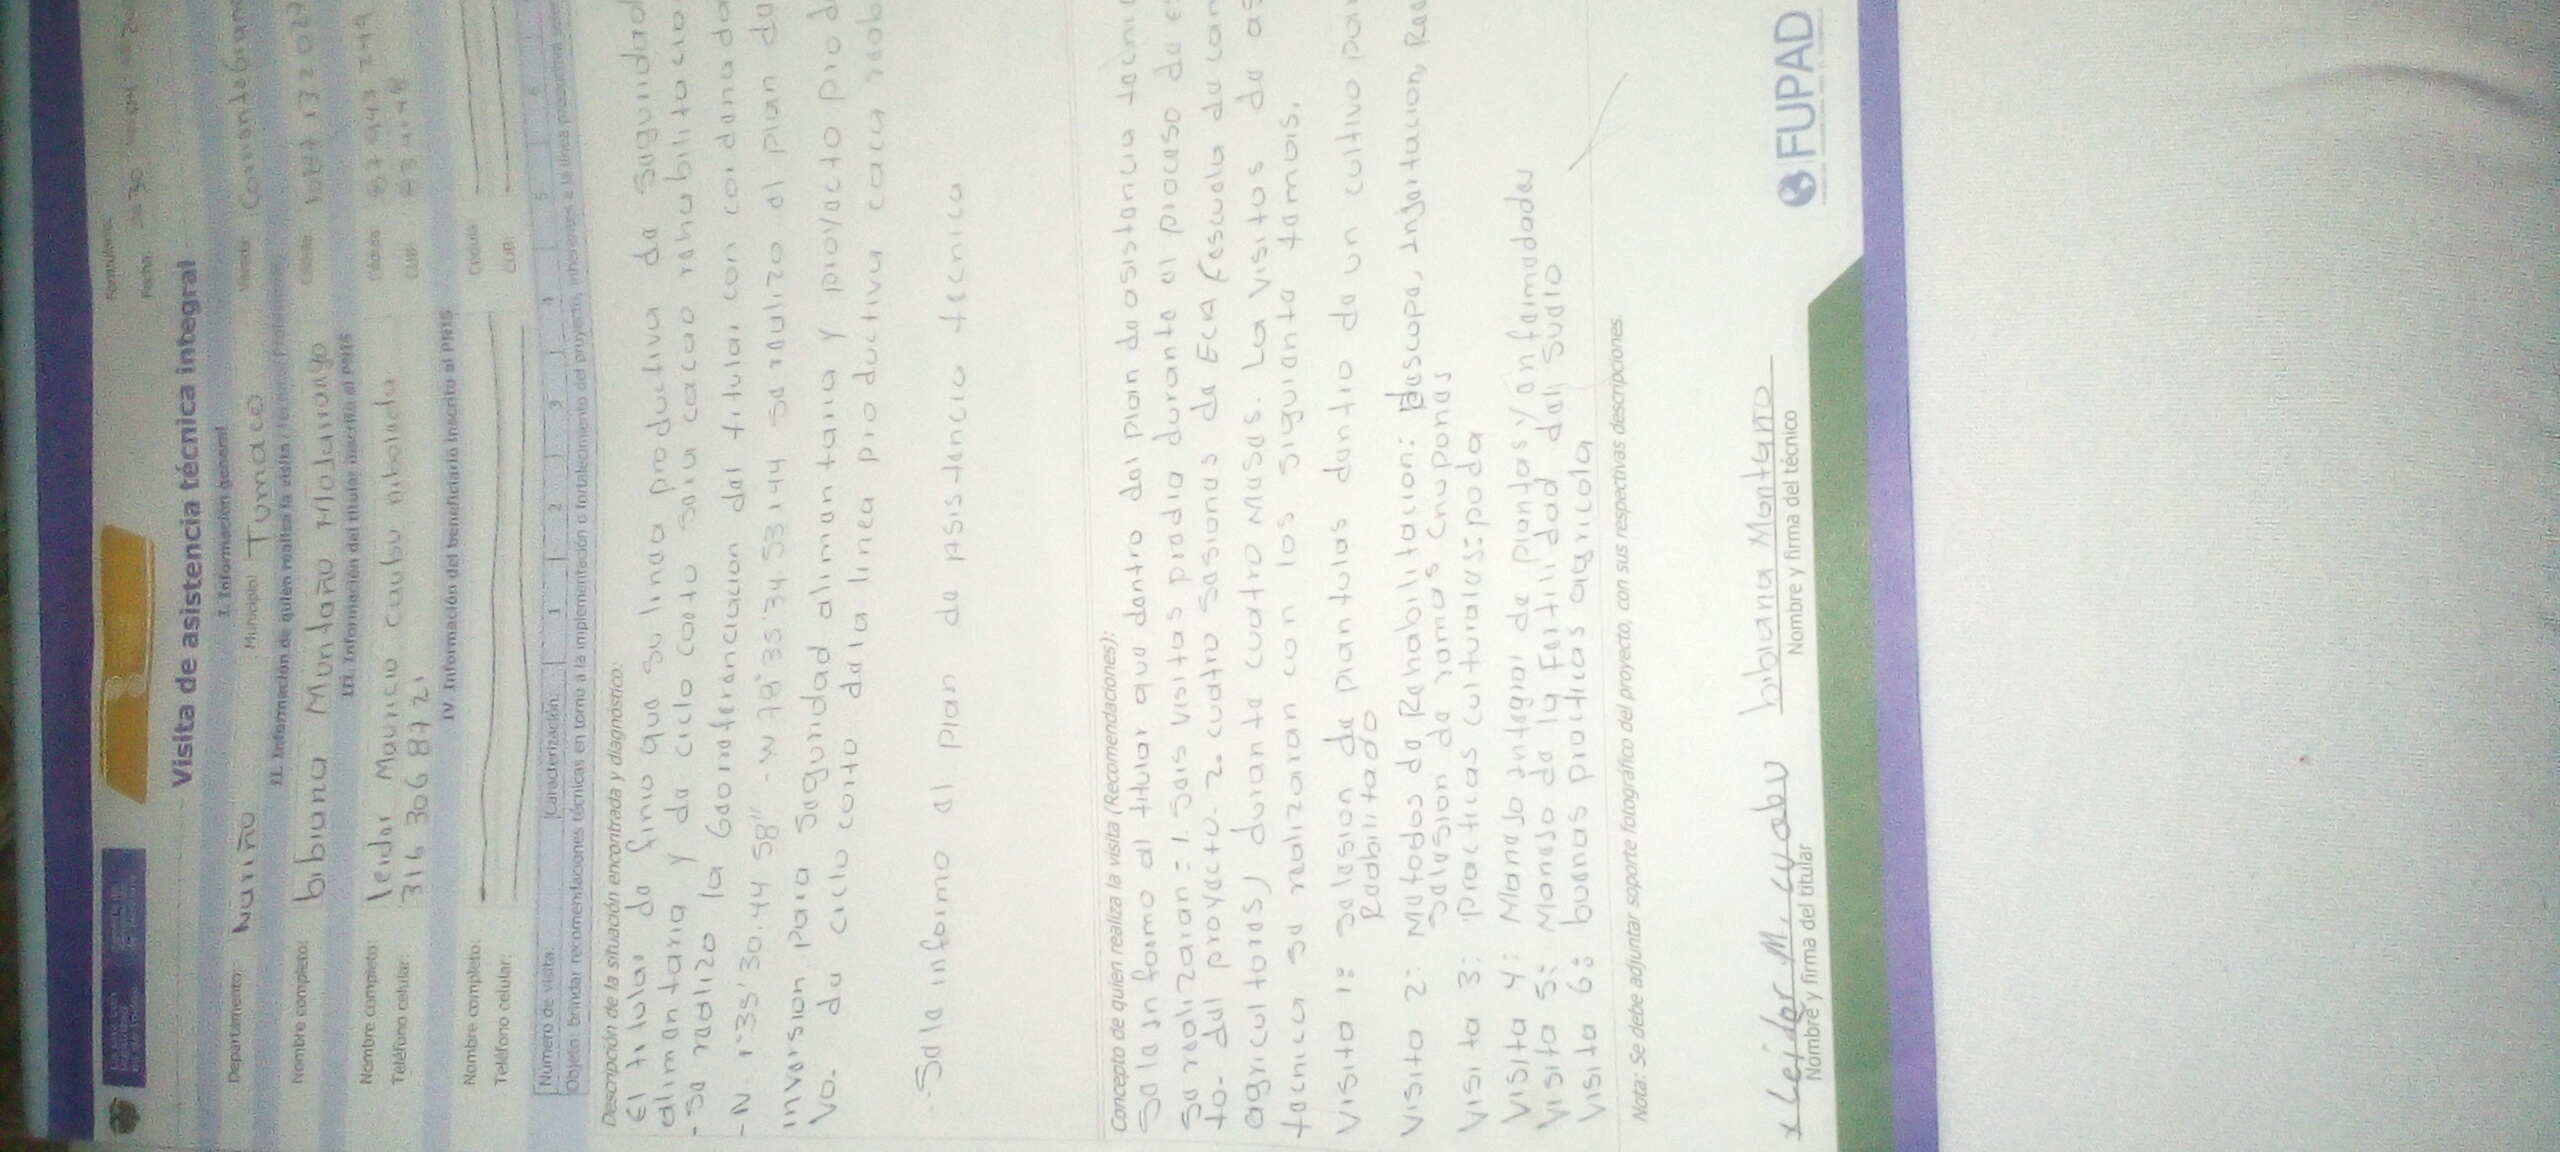 Formulario:
Fecha: 30
Visita de asistencia técnica integral
I. Información general
Departamento: Nariño Municipio: Tumaco
II. Información de quien realiza la visita
Nombre completo: bibiana Montaño
III. Información del titular inscrito al PNIS
Nombre completo: leider Mauricio Cédula:
Teléfono celular: 316 306 8721 CUB:
IV. Información del beneficiario inscrito al PNIS
Nombre completo: Cédula:
Teléfono celular: CUB:
Número de visita: Caracterización: 1 2 3 4 5 6
Objeto: brindar recomendaciones técnicas en torno a la implementación o fortalecimiento del proyecto, inherentes a la línea productiva
Descripción de la situación encontrada y diagnóstico:
El titular de finio que su linea productiva de seguridad
alimentaria y de ciclo corto seria cacao rehabilitacio
- se realizo la Georreferenciacion del titular con coordenada
- N 1°35'30.44 58" - W 78°35'34.53144 se realizo el plan de
inversion para seguridad alimentaria y proyecto pro d
vo. de ciclo corto de la linea productiva cacao
- Se le informo el plan de Asistencia tecnica
Concepto de quien realiza la visita (Recomendaciones):
Se le informo al titular que dentro del plan de asistencia tecnic
se realizaran: 1. seis visitas predio durante el proceso de
to- del proyecto. 2. cuatro sesiones de ECA (escuela de cam
agricultores) durante cuatro meses. La visitas de as
tecnica se realizaran con los siguiente temais.
Visita 1: selesion de plantulas dentro de un cultivo par
Reabilitado
Visita 2: Metodos de Rehabilitacion: descope, injertacion, Re
selesion de ramas chuponas
Visita 3: practicas culturales: poda
Visita 4: Manejo integral de plantas y enfermedades
Visita 5: Manejo de la fertilidad del suelo
Visita 6: buenas practicas agricola
Nota: Se debe adjuntar soporte fotográfico del proyecto, con sus respectivas descripciones.
x Leider M. cuabu bibiana Montaño
Nombre y firma del titular Nombre y firma del técnico
FUPAD